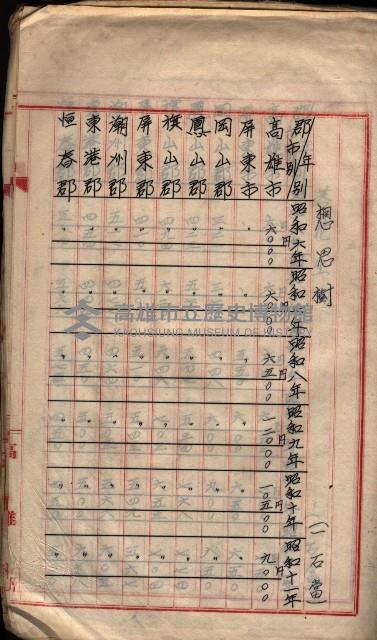 想思樹
（一石當）
郡市別／年別 昭和六年 昭和七年 昭和八年 昭和九年 昭和十年 昭和十一年
高雄市 六〇〇〇円 六〇〇〇円 六五〇〇円 一二〇〇〇円 一〇五〇〇円 九〇〇〇円
屏東市 〃 〃 〃 〃 〃 〃
岡山郡 〃 〃 〃 〃 〃 〃
鳳山郡 〃 〃 〃 〃 〃 〃
旗山郡 〃 〃 〃 〃 〃 〃
屏東郡 〃 〃 〃 〃 〃 〃
潮州郡 〃 〃 〃 〃 〃 〃
東港郡 〃 〃 〃 〃 〃 〃
恒春郡 〃 〃 〃 〃 〃 〃
高雄市立歷史博物館
KAOHSIUNG MUSEUM OF HISTORY
高雄